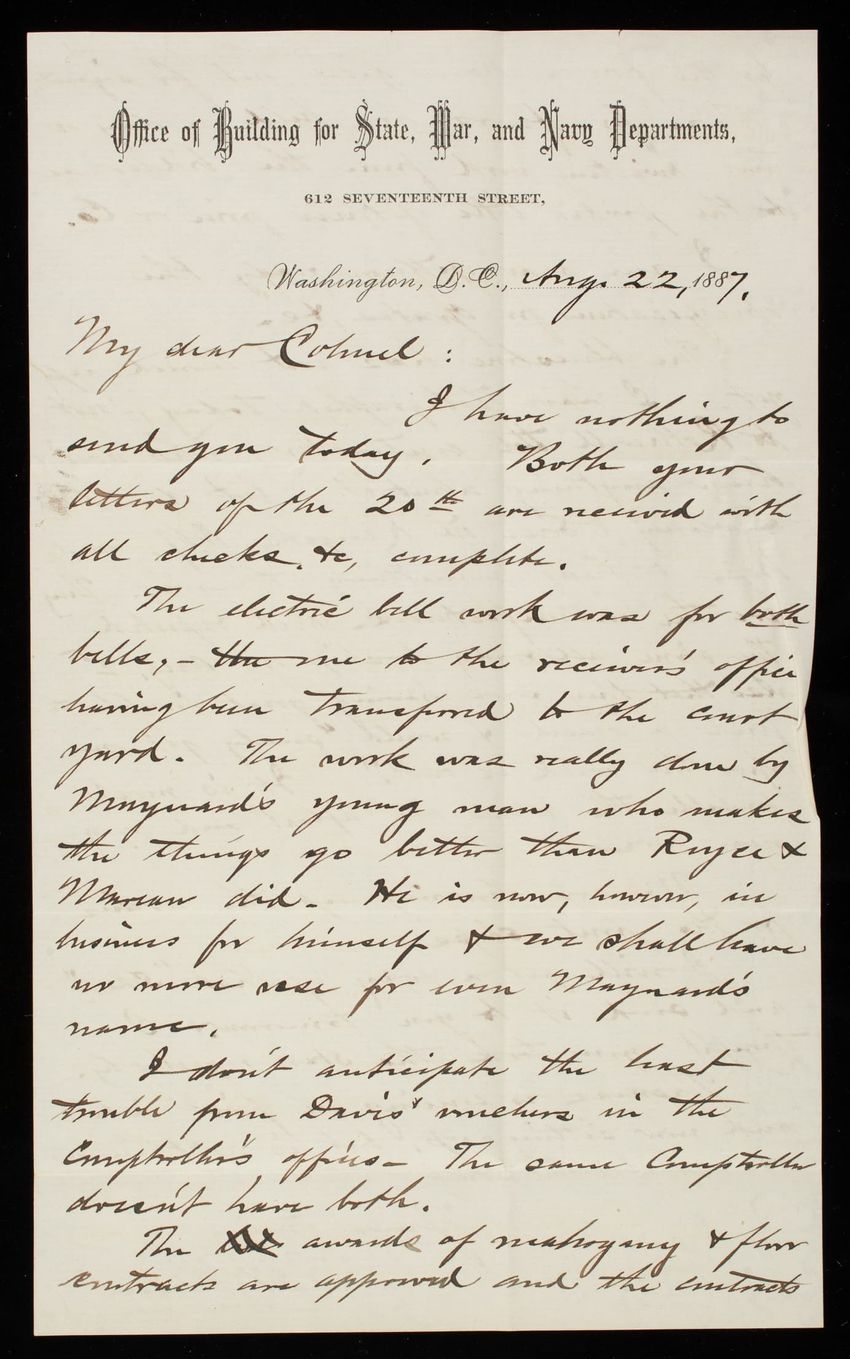 Office of Building for State, War, and Navy Departments,
612 SEVENTEENTH STREET,
Washington, D.C., Aug. 22, 1887.
My dear Colonel :
I have nothing to
send you today. Both your
letters of the 20th are received with
all checks, &c, complete.
The electric bell work was for both
bells, - the one to the receiver's office
having been transferred to the court
yard. The work was really done by
Maynard's young man who makes
the things go better than Royce &
Marean did - He is now, however, in
business for himself & we shall have
no more use for even Maynard's
name.
I don't anticipate the least
trouble from Davis' vouchers in the
Comptroller's offices - The same Comptroller
doesn't have both.
The awards of mahogany & floor
contracts are approved and the contracts